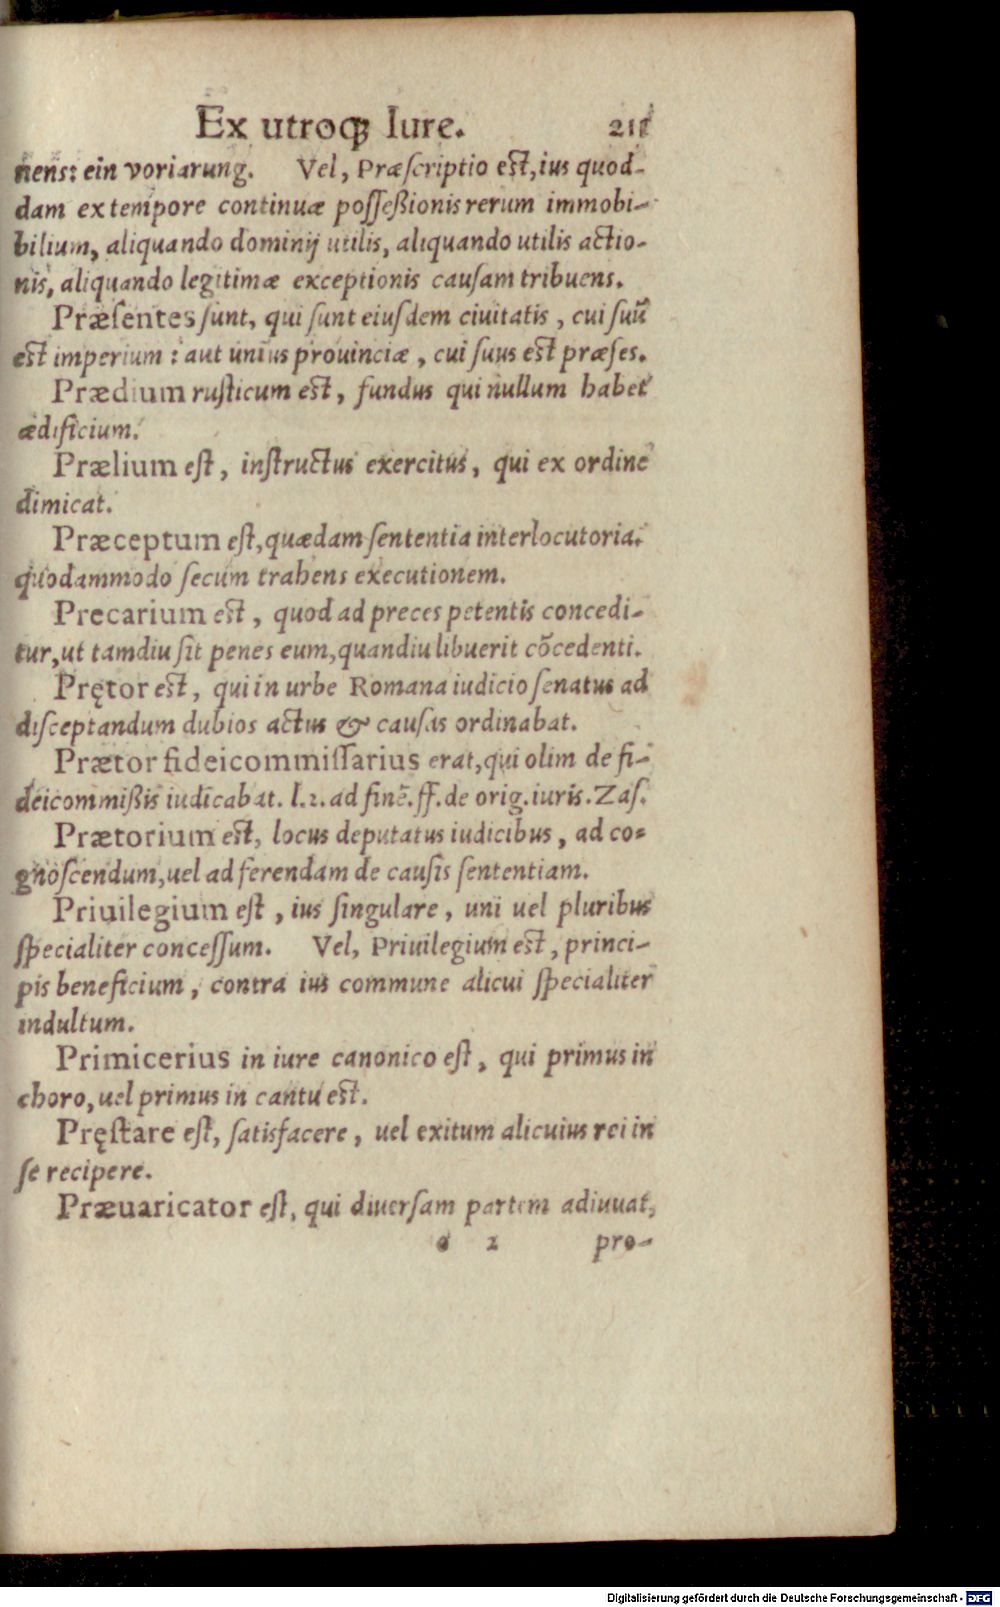 Ex utroq́ꝫ Iure. 211
nens: ein voriarung. Vel, Præſcriptio est, ius quod-
dam ex tempore continuæ poſſeßionis rerum immobi-
bilium, aliquando dominij utilis, aliquando utilis actio-
nis, aliquando legitimæ exceptionis cauſam tribuens.
Præſentes ſunt, qui ſunt eiuſdem ciuitatis, cui ſuū
est imperium: aut unius prouinciæ, cui ſuus est præſes.
Prædium ruſticum est, fundus qui nullum habet
ædificium.
Prælium eſt, inſtructus exercitus, qui ex ordine
dimicat.
Præceptum eſt, quædam ſententia interlocutoria,
quodammodo ſecum trahens executionem.
Precarium est, quod ad preces petentis concedi-
tur, ut tamdiu ſit penes eum, quandiu libuerit cōcedenti.
Prętor est, qui in urbe Romana iudicio ſenatus ad
diſceptandum dubios actus & cauſas ordinabat.
Prætor fideicommiſſarius erat, qui olim de fi-
deicommißis iudicabat. l.2. ad finē. ff. de orig. iuris. Zaſ.
Prætorium est, locus deputatus iudicibus, ad co-
gnoſcendum, uel ad ferendam de cauſis ſententiam.
Priuilegium eſt, ius ſingulare, uni uel pluribus
ſpecialiter conceſſum. Vel, Priuilegium est, princi-
pis beneficium, contra ius commune alicui ſpecialiter
indultum.
Primicerius in iure canonico eſt, qui primus in
choro, uel primus in cantu est.
Pręstare eſt, ſatisfacere, uel exitum alicuius rei in
ſe recipere.
Præuaricator eſt, qui diuerſam partem adiuuat,
o 2 pro-
Digitalisierung gefördert durch die Deutsche Forschungsgemeinschaft - DFG